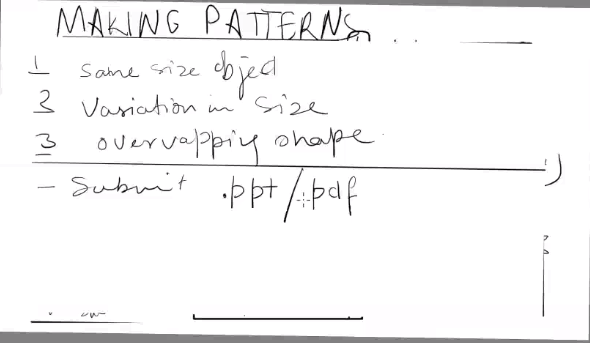 MAKING PATTERNS
1 Same size object
2 Variation in size
3 overvapping shape
- Submit .ppt/.pdf